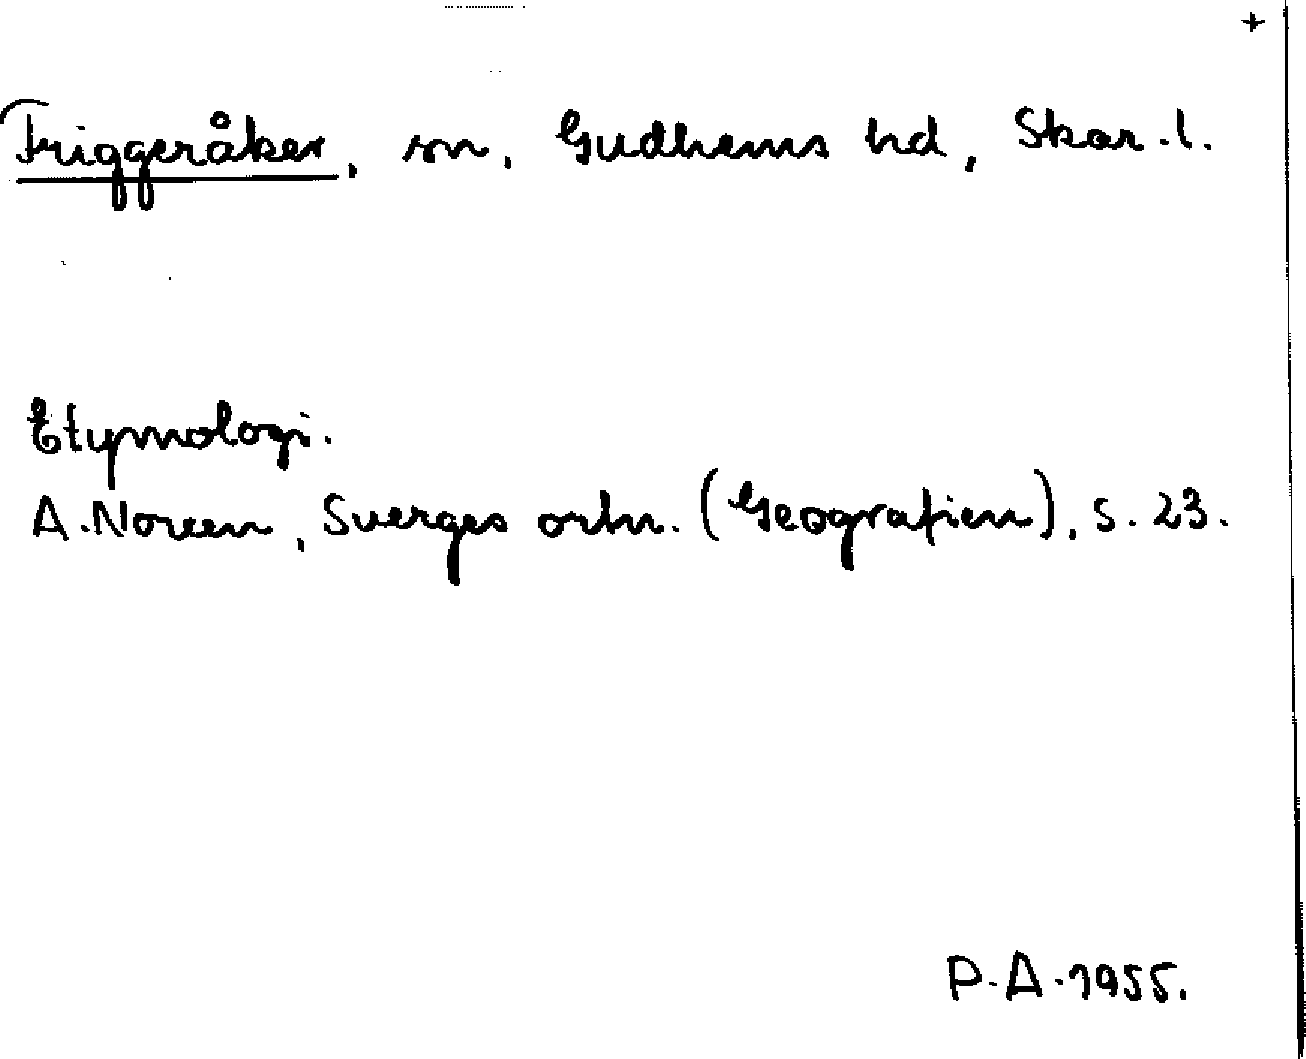 +
Friggeråker, sn, Gudhems hd, Skar.l.
Etymologi.
A. Noreen, Sverges ortn. (Geografien), s. 23.
P.A. 1955.